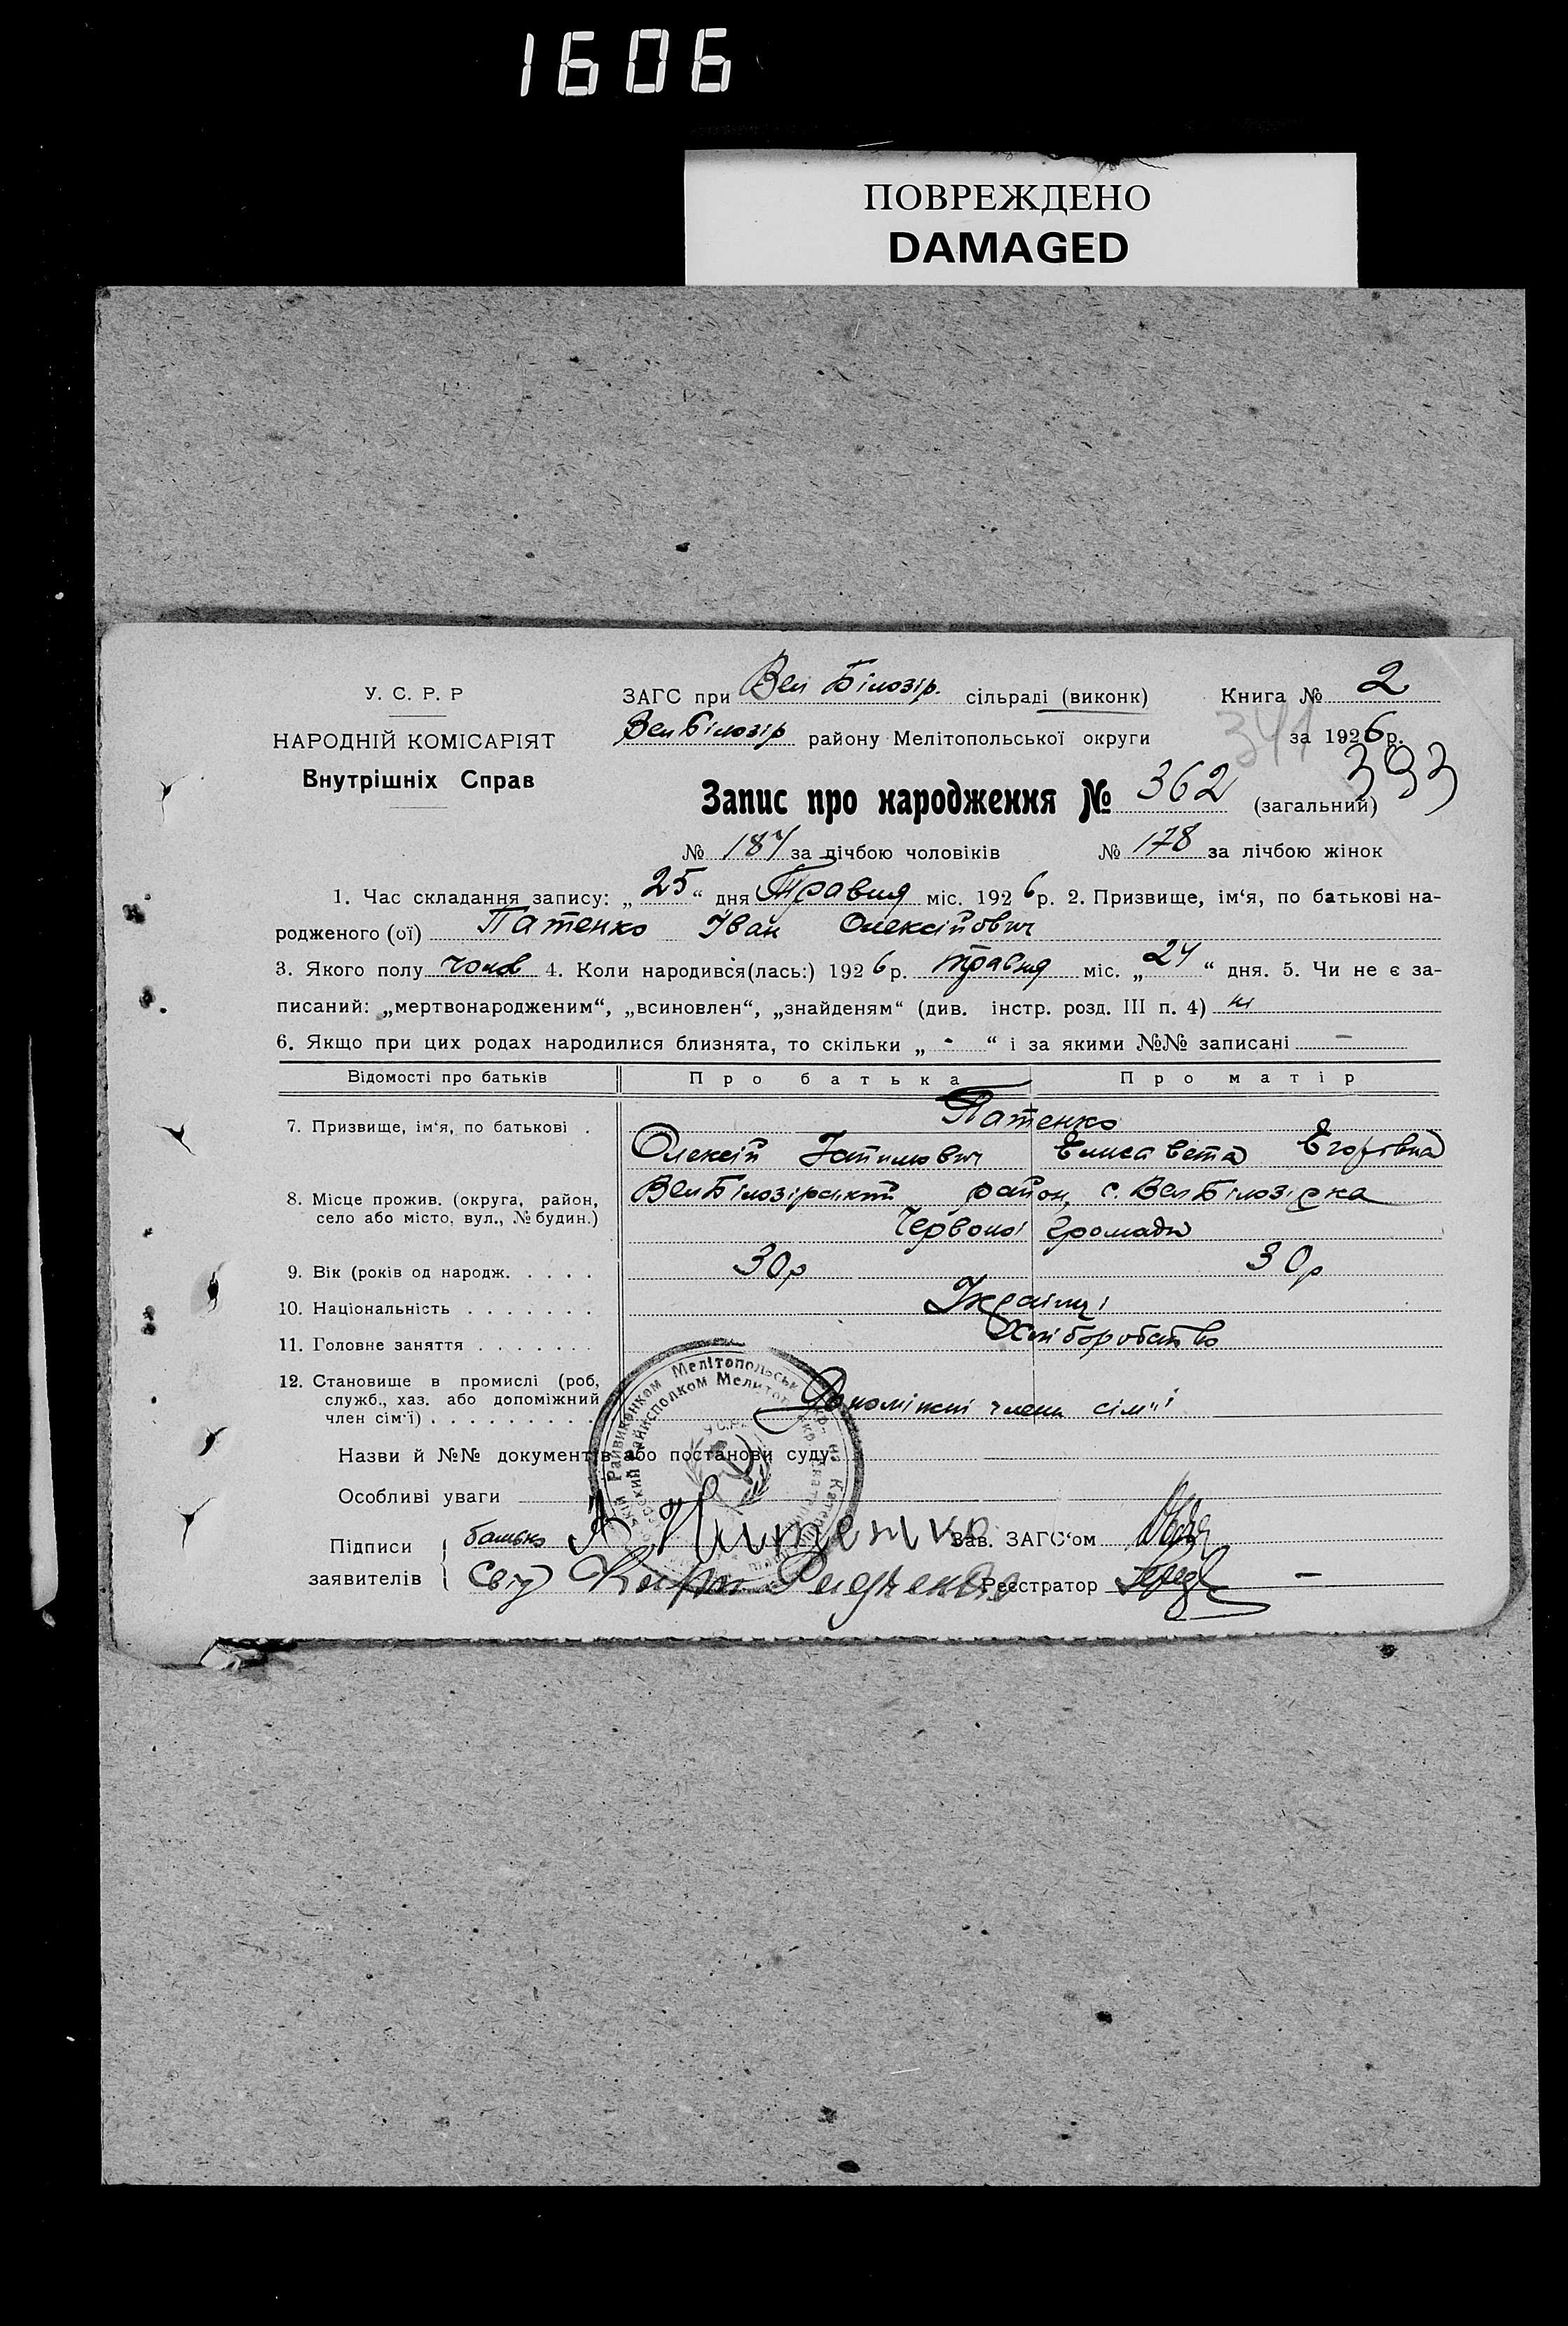 1606
ПОВРЕЖДЕНО
DAMAGED
У. С. Р. Р
НАРОДНІЙ КОМІСАРІЯТ
Внутрішніх Справ
ЗАГС при Вел Білозір. сільраді (виконк) Книга № 2
Вел Білозір району Мелітопольської округи за 1926 р.
341
393
Запис про народження № 362 (загальний)
№ 184 за лічбою чоловіків № 178 за лічбою жінок
1. Час складання запису: „25“ дня Травня міс. 1926 р. 2. Призвище, ім‘я, по батькові на-
родженого (ої) Патенко Іван Олексійович
3. Якого полу чолов 4. Коли народився(лась:) 1926 р. травня міс. „24“ дня. 5. Чи не є за-
писаний: „мертвонародженим“, „всиновлен“, „знайденям“ (див. інстр. розд. III п. 4) ні
6. Якщо при цих родах народилися близнята, то скільки „ - “ і за якими №№ записані —
Відомості про батьків Про батька Про матір
7. Призвище, ім‘я, по батькові . Патенко
Олексій Елисавета Егорівна
8. Місце прожив. (округа, район, ВелБілозірський район, с. Вел Білозірка
село або місто, вул., № будин.) Червоної громади
9. Вік (років од народж. . . . . 30р 30р
10. Національність . . . . . . . Українці
11. Головне заняття . . . . . . . Хліборобство
12. Становище в промислі (роб, служб., хаз. або допоміжний член сім‘ї) . . . . . . . . . Допоміжні члени сім'ї
Назви й №№ документів або постанови суду:
Особливі уваги
Підписи батько А Зав. ЗАГС‘ом
заявителів Свід Реєстратор
Райвиконком Мелітопольськ